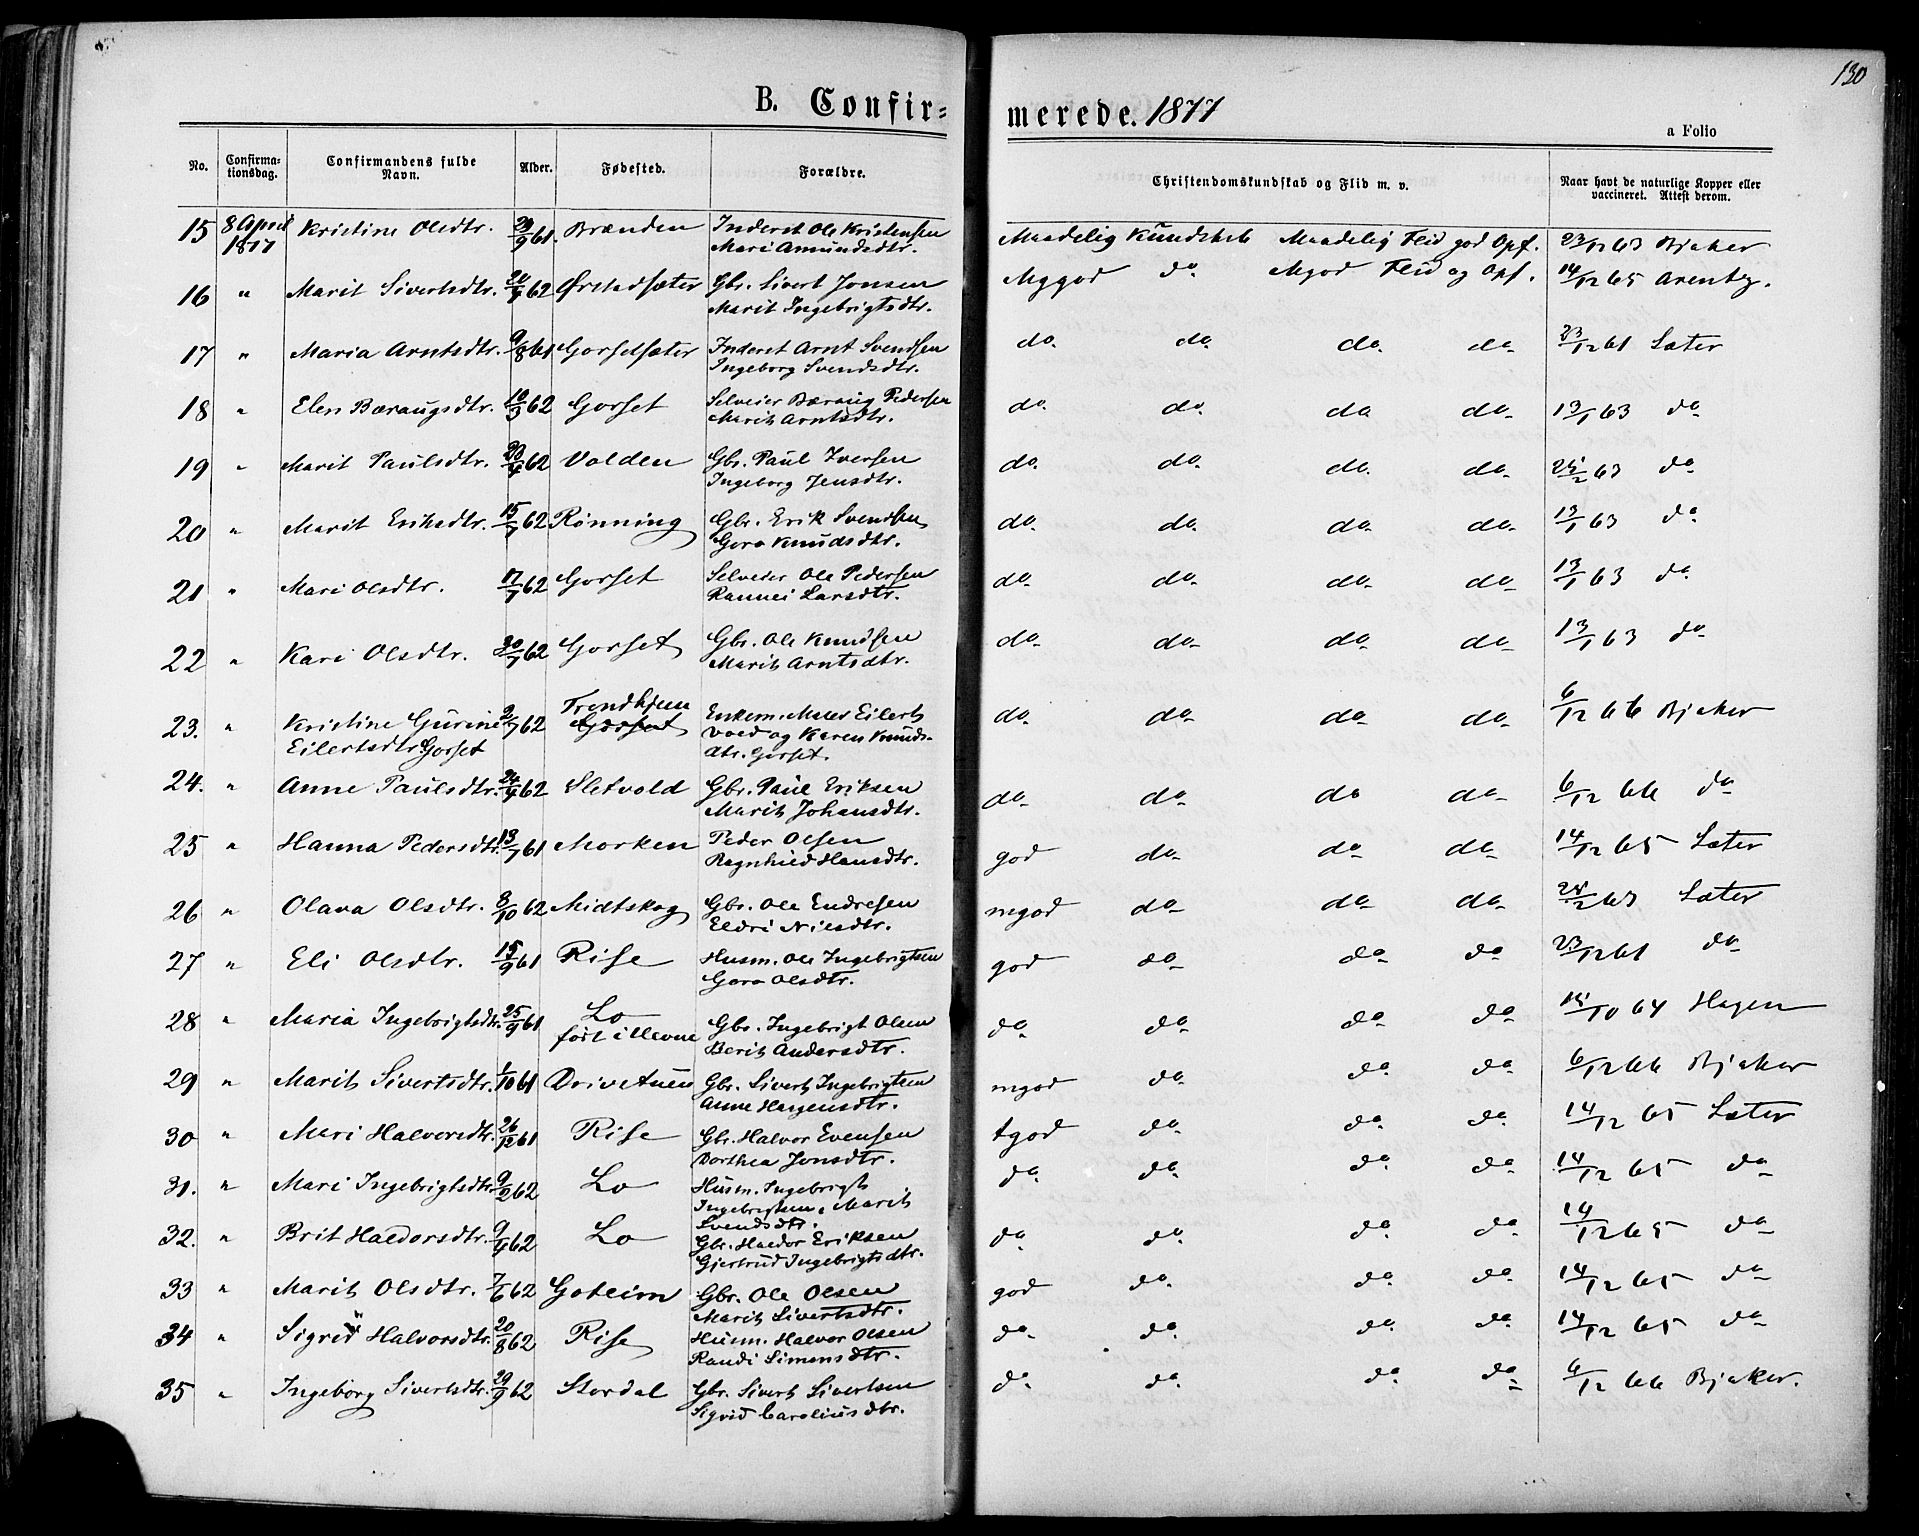 130
B. Confir=
merede. 1877
a Folio
No. Confirma-tionsdag. Confirmandens fulde Navn. Alder. Fødested. Forældre. Christendomskundskab og Flid m. v. Naar havt de naturlige Kopper eller vaccineret. Attest derom.
15 8 April 1877 Kristine Olsdtr. 29/9 61. Brænden Inderst Ole Kristensen Maadelig Kundskab Maadelig Flid god Opf. 23/12 63 Bjaker
Mari Amundsdtr.
16 " Marit Sivertsdtr. 62 Ørstadsæter Gbr. Sivert Jonsen Mggod do Mgod Flid og Opf. 14/12 65 Arentz.
Marit Ingebrigtsdtr.
17 " Maria Arntsdtr. 9/8 61 Gorsetsæter Inderst Arnt Svendsen do. do. do. do. 23/12 61 Sæter
Ingeborg Svendsdtr.
18 " Elen Bæraugsdtr. 10/3 62 Gorset Selveier Bæraug Pedersen do. do. do do. 13/1 63 do
Marit Arntsdtr.
19 " Marit Paulsdtr. 62 Volden Gbr. Paul Iversen do. do. do. do. 25/2 63 do
Ingeborg Jensdtr.
20 " Marit Eriksdtr. 15/7 62 Rønning Gbr. Erik Svendsen do. do. do. do. 13/1 63 do
Goro Knudsdtr.
21 " Mari Olsdtr. 17/7 62 Gorset Selveier Ole Pedersen do. do. do. do. 13/1 63 do
Rannei Larsdtr.
22 " Kari Olsdtr. 30/7 62 Gorset Gbr. Ole Knudsen do. do. do. do. 13/1 63 do
Marit Arntsdtr.
Trondhjem
23. " Kristine Gurine 62 Gorset Enkem. Maler Eilert do. do. do. do. 6/12 66 Bjaker
Eilertsdtr. Gorset vold og Karen Knuds-
dtr. Gorset.
24. " Anne Paulsdtr. 24/4 62 Sletvold Gbr. Paul Eriksen do. do. do do. 6/12 66 do
Marit Johansdtr.
25 " Hanna Pedersdtr. 13/7 61 Morken Peder Olsen god do. do do. 14/12 65 Sæter
Ragnhild Hansdtr.
26 " Olava Olsdtr. 3/10 62 Midtskog Gbr. Ole Endresen mgod do do do. 25/2 63 Sæter
Eldri Nilsdtr.
27 " Eli Olsdtr. 15/9 61 Rise Husm. Ole Ingebrigtsen god do do. do 23/12 61 do
Goro Olsdtr.
28 " Maria Ingebrigtsdtr. 25/9 61 Lo
født i Nevne Gbr. Ingebrigt Olsen do. do. do. do. 15/10 64 Hagen
Berit Andersdtr.
29 " Marit Sivertsdtr. 1/10 61 Drivstuen Gbr. Sivert Ingebrigtsen mgod do. do. do. 6/12 66 Bjaker
Anne Hagensdtr.
30 " Mari Halvorsdtr. 26/12 61 Rise Gbr. Halvor Evensen tgod do. do. do. 14/12 65 Sæter
Dorthea Jonsdtr.
31. " Mari Ingebrigtsdtr. 9/2 62 Lo Husm. Ingebrigt do. do. do. do. 14/12 65 do
Ingebrigtsen, Marit
Svendsdtr.
32. " Brit Haldorsdtr. 9/4 62 Lo Gbr. Haldor Eriksen do. do. do. do. 14/12 65 do
Gjertrud Ingebrigtsdtr.
33 " Marit Olsdtr. 7/6 62 Goteim Gbr. Ole Olsen god do. do. do. 14/12 65 do
Marit Sivertsdtr.
34 " Sigrid Halvorsdtr. 20/8 62 Rise Husm. Halvor Olsen do. do. do. do. 14/12 65 do
Randi Simensdtr.
35 " Ingeborg Sivertsdtr. 29/9 62 Stordal Gbr. Sivert Sivertsen do. do. do do. 6/12 66 Bjaker.
Sigrid Caroliusdtr.